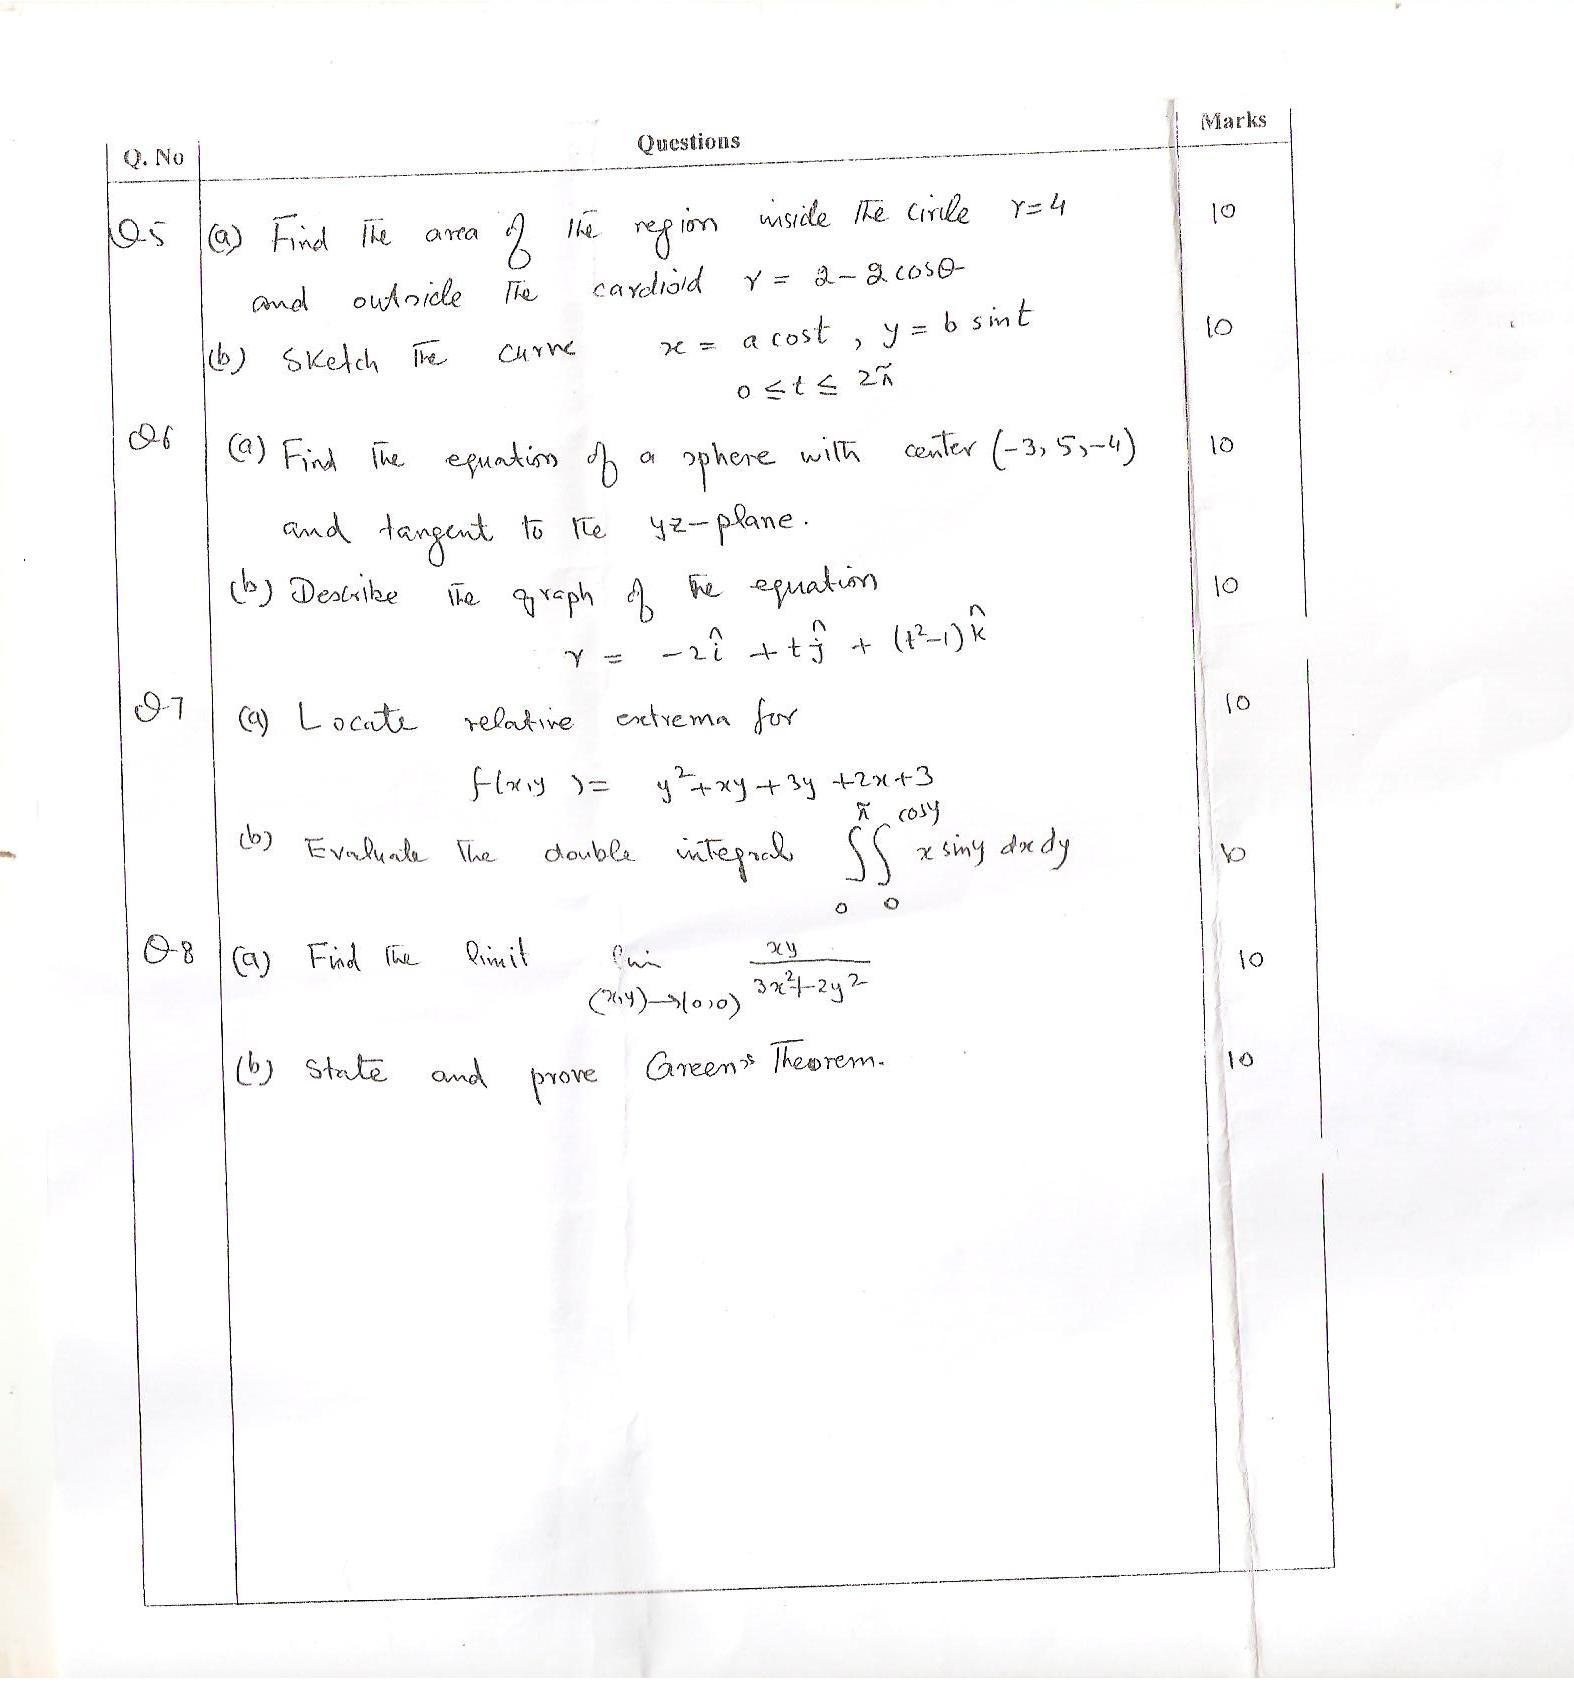 Q. No Questions Marks
Q5 (a) Find the area of the region inside the circle r=4 10
and outside the cardioid r = 2-2cosθ
(b) Sketch the curve x = a cost , y = b sint 10
0 ≤ t ≤ 2π
Q6 (a) Find the equation of a sphere with center (-3, 5, -4) 10
and tangent to the yz-plane.
(b) Describe the graph of the equation 10
r = -2î + tĵ + (t²-1)k̂
Q7 (a) Locate relative extrema for 10
f(x,y) = y²+xy+3y+2x+3
(b) Evaluate the double integral ∫₀^π ∫₀^cosy x siny dx dy 10
Q8 (a) Find the limit lim (x,y)→(0,0) xy / 3x²+2y² 10
(b) State and prove Green's Theorem. 10